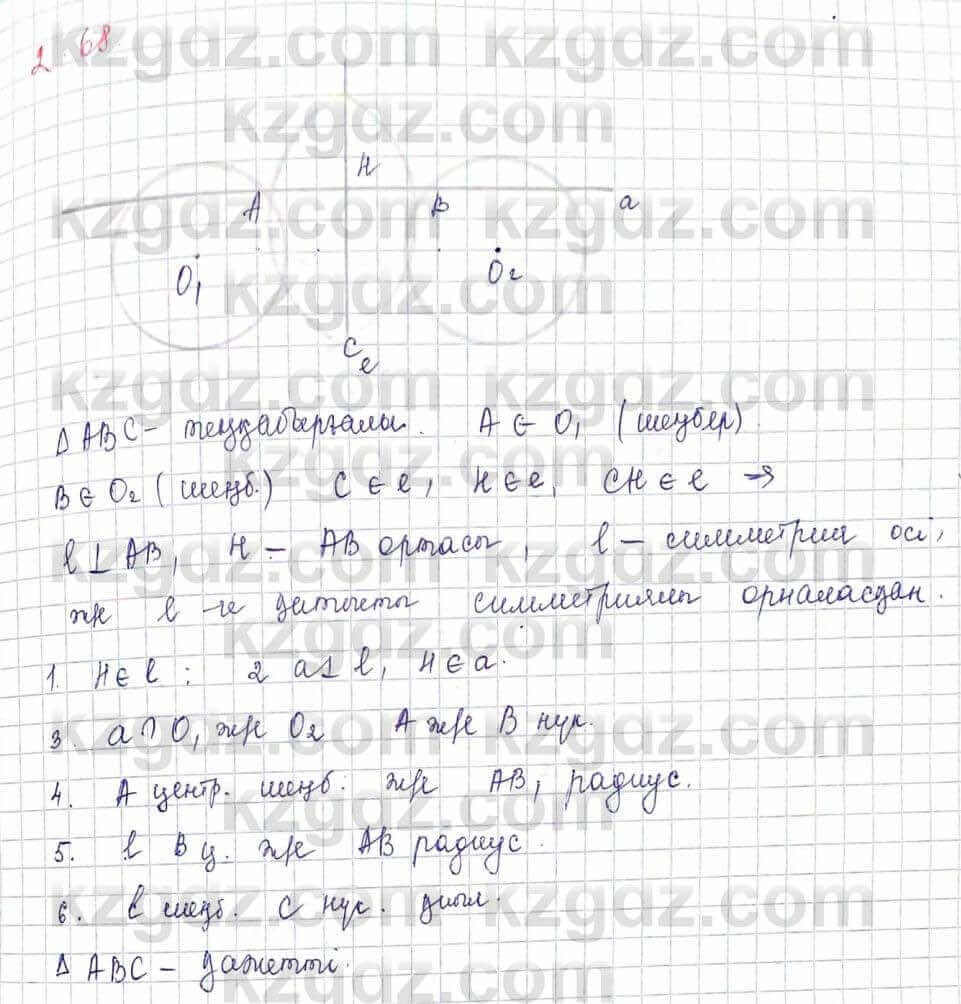 2 68.
H
A B a
O₁ O₂
C
e
Δ ABC - теңқабырғалы. A ∈ O₁ (шеңбер)
B ∈ O₂ (шеңб.) C ∈ l, H ∈ l, CH ∈ l →
l ⊥ AB, H - AB ортасы, l - симметрия осі,
жк l -ге қатысты симметриялы орналасқан.
1. H ∈ l : 2 a ⊥ l, H ∈ a.
3. a ∩ O₁ жк O₂ A жк B нүк.
4. A центр. шеңб. жк AB, радиус.
5. l B ц. жк AB радиус.
6. l шеңб. C нүк.
Δ ABC - қажетті.
kzgdz.com